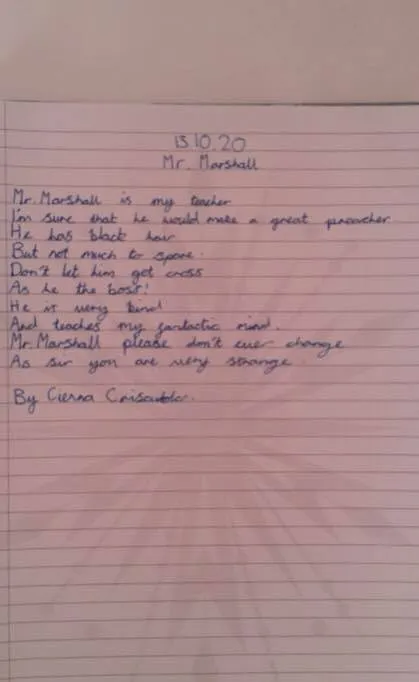 13.10.20
Mr. Marshall
Mr. Marshall is my teacher
I'm sure that he would make a great preacher
He has black hair
But not much to spare.
Don't let him get cross
As he the boss!
He is very kind
And teaches my fantastic mind.
Mr. Marshall please don't ever change
As sir you are very strange.
By Cierna